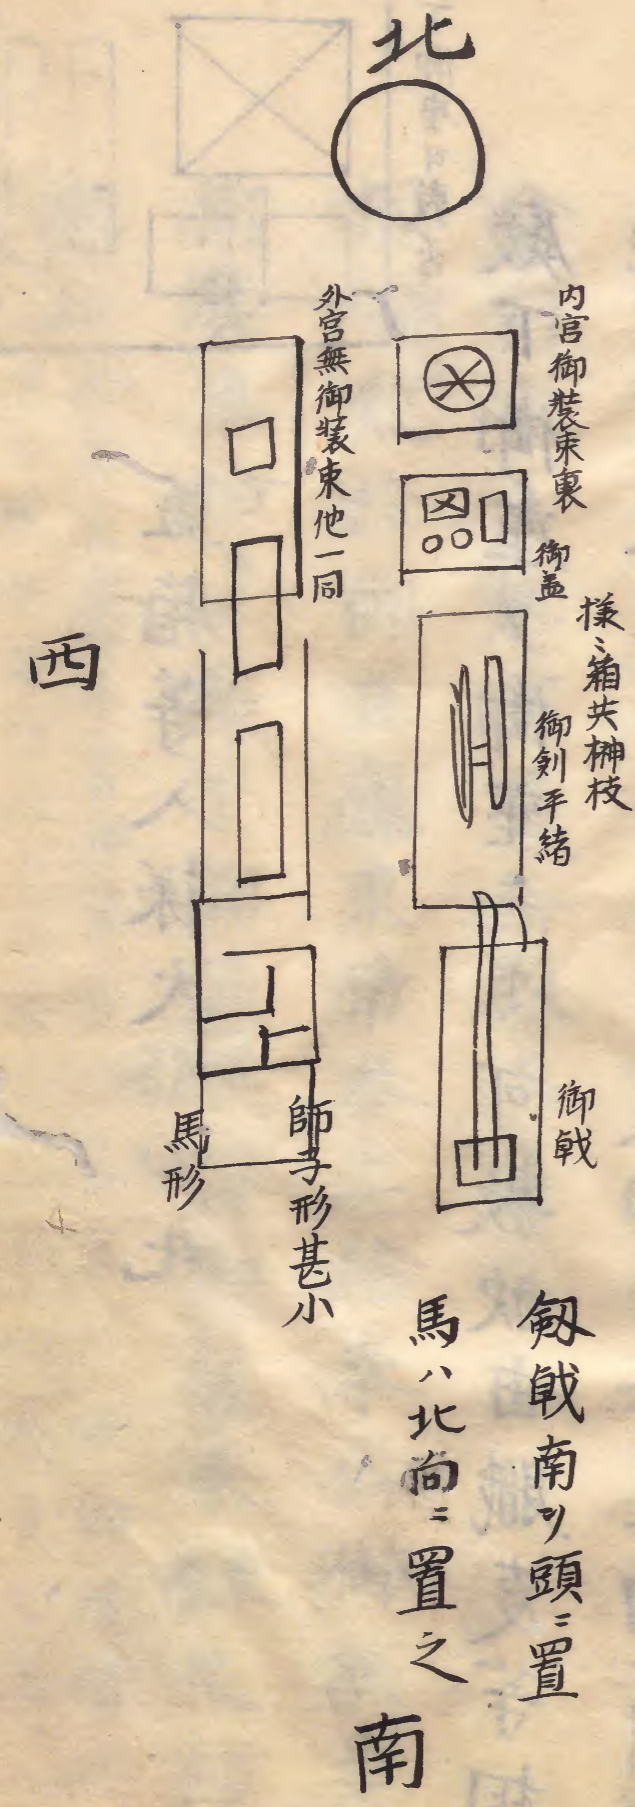 北
内宮御装束裏
御蓋
様〻箱共榊枝
御剣平緒
御戟
外宮無御装束他一同
西
師子形甚小
馬形
剱戟南ヲ頭ニ置
馬ハ北向ニ置之
南